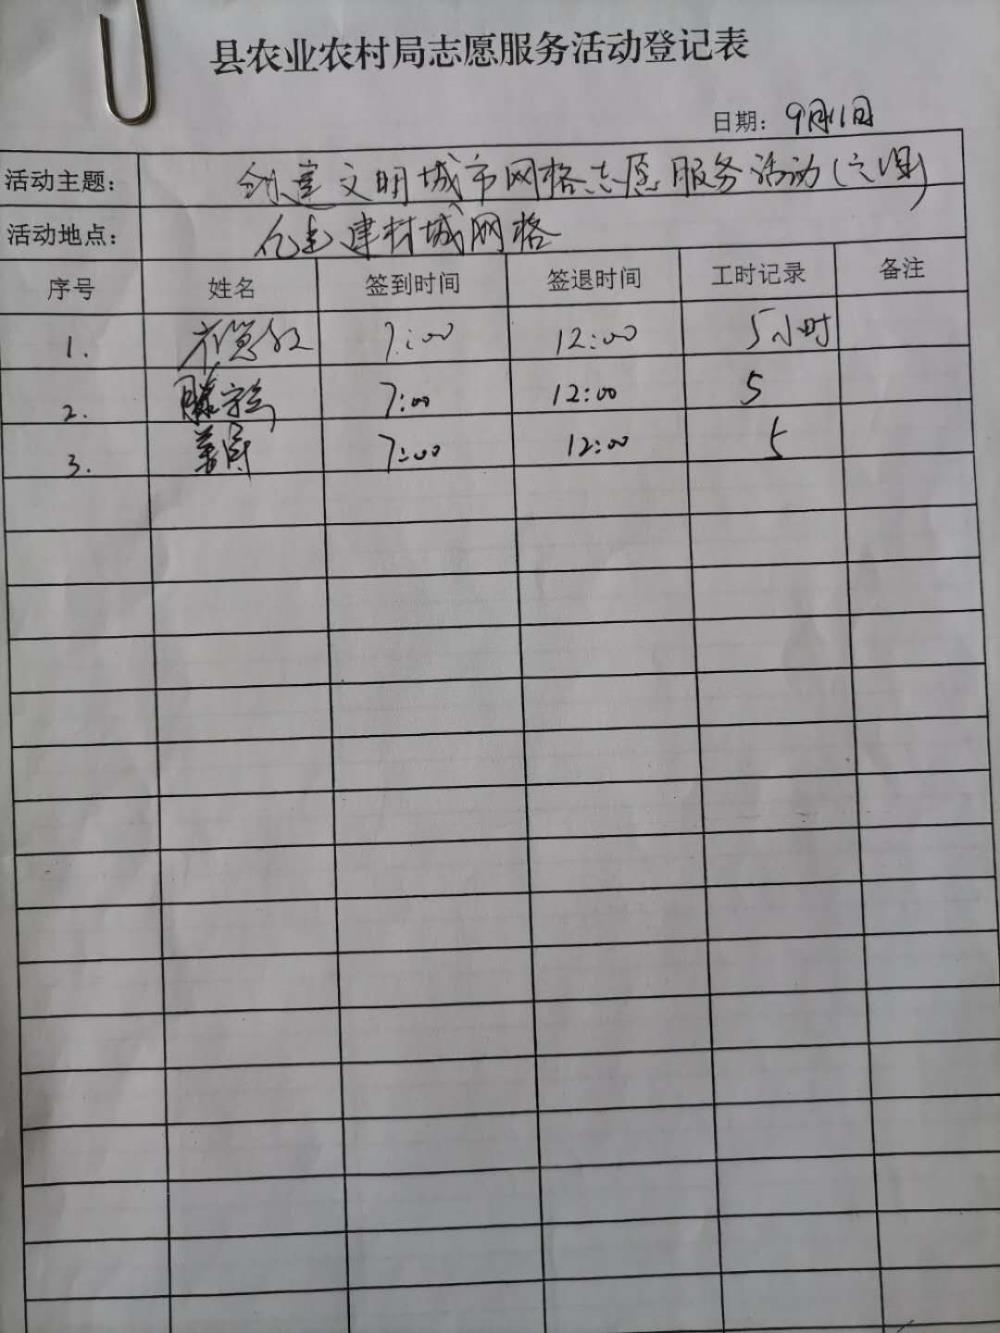 县农业农村局志愿服务活动登记表
日期：9月11日
活动主题： 创建文明城市网格志愿服务活动
活动地点： 建材城网格
序号 姓名 签到时间 签退时间 工时记录 备注
1. 7:00 12:00 5小时
2. 滕 7:00 12:00 5
3. 7:00 12:00 5